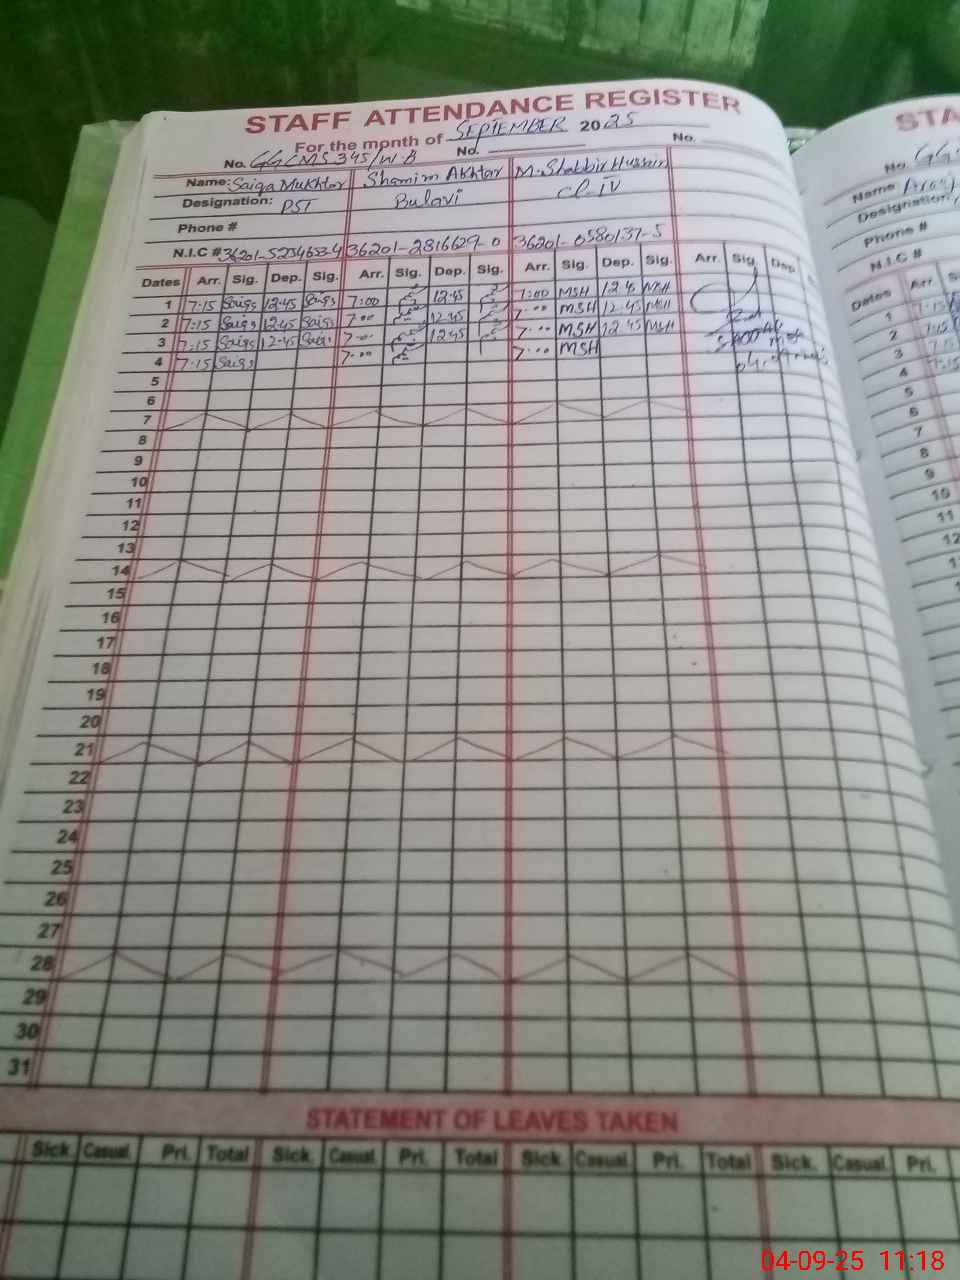 STAFF ATTENDANCE REGISTER
For the month of SEPTEMBER 2025
No. GGCMS 345/W.B No. No.
Name: Saiqa Mukhtar Shamim Akhtar M. Shabbir Hussain
Designation: PST Bulavi Cl-IV
Phone #
N.I.C # 36201-2816629-0 36201-0580137-5
Dates Arr. Sig. Dep. Sig. Arr. Sig. Dep. Sig. Arr. Sig. Dep. Sig. Arr. Sig. Dep
1 7:15 Saiqa 12:45 Saiqa 7:00 12:45 7:00 MSH 12:45 MSH
2 7:15 Saiqa 12:45 Saiqa 7:00 12:45 7:00 MSH 12:45 MSH
3 7:15 Saiqa 12:45 Saiqa 7:00 12:45 7:00 MSH 12:45 MSH
4 7:15 Saiqa 7:00 7:00 MSH
5
6
7
8
9
10
11
12
13
14
15
16
17
18
19
20
21
22
23
24
25
26
27
28
29
30
31
STATEMENT OF LEAVES TAKEN
Sick. Casual. Pri. Total Sick. Casual. Pri. Total Sick. Casual. Pri. Total Sick. Casual. Pri.
STA
No. GG
Name:
Designation:
Phone #
N.I.C #
Dates Arr.
1 7:15
2 7:15
3 7:15
4 7:15
5
6
7
8
9
10
11
12
04-09-25 11:18